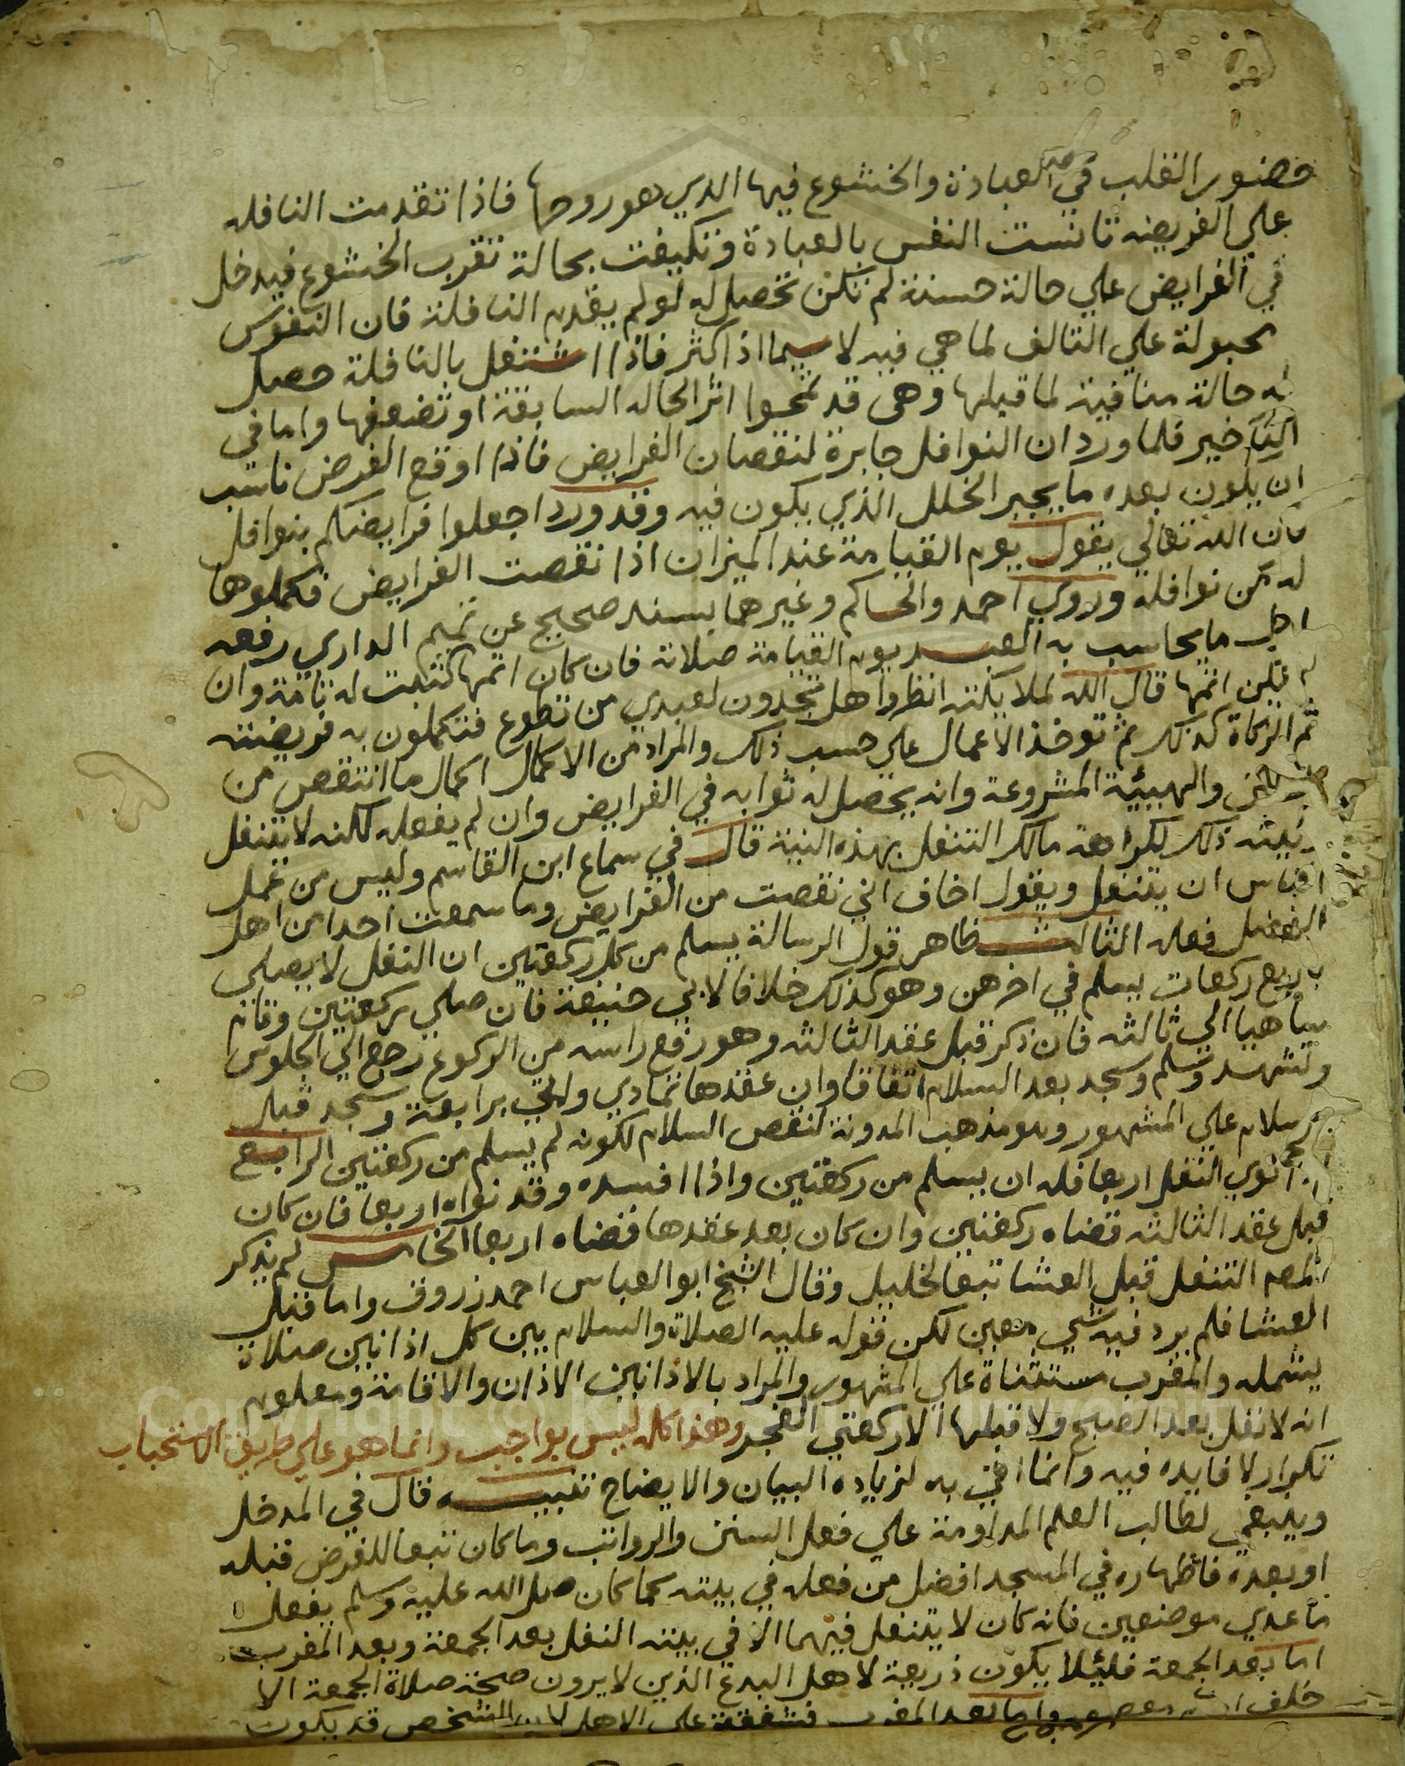 حضور القلب في العبادة والخشوع فيها الذي هو روحها فاذا تقدمت النافله
علي الفريضه تانست النفس بالعبادة وتكيفت بحالة تقرب الخشوع فيدخل
في الفرايض علي حالة حسنة لم تكن تحصل له لو لم يقدم النافلة فان النفوس
مجبولة علي التالف لما هي فيه لا سيما اذا كثر فاذا اشتغل بالنافلة حصل
له حالة منافية لما قبلها وهي قد تمحوا اثر الحاله السابقة او تضعفها واما في
التاخير فلما ورد ان النوافل جابرة لنقصان الفرايض فاذا اوقع الفرض ناسب
ان يكون بعده ما يجبر الخلل الذي يكون فيه وقد ورد اجعلوا فرايضكم بنوافل
فان الله تعالي يقول يوم القيامة عند الميزان اذا نقصت الفرايض فكملوها
له من نوافله وروي احمد والحاكم وغيرهما بسند صحيح عن تميم الداري رفعه
اول ما يحاسب به العبد يوم القيامة صلاته فان كان اتمها كتبت له تامة وان
لم يكن اتمها قال الله لملايكته انظروا هل تجدون لعبدي من تطوع فتكملون به فريضته
ثم الزكاة كذلك ثم توخذ الاعمال علي حسب ذلك والمراد من الاكمال اكمال ما انتقص من
السنن والهيئية المشروعة وانه يحصل له ثوابه في الفرايض وان لم يفعله لكنه لا يتنفل
بنيته ذلك لكراهة مالك التنفل بهذه النية قال في سماع ابن القاسم وليس من عمل
الناس ان يتنفل ويقول اخاف اني نقصت من الفرايض وما سمعت احدا من اهل
الفضل فعله الثالث ظاهر قول الرسالة يسلم من كل ركعتين ان النفل لا يصلي
باربع ركعات يسلم في اخرهن وهو كذلك خلافا لابي حنيفة فان صلي ركعتين وقام
ساهيا الي ثالثه فان ذكر قبل عقد الثالثه وهو رفع راسه من الركوع رجع الي الجلوس
وتشهد وسلم وسجد بعد السلام اتفاقا وان عقدها تمادي واتي برابعة وسجد قبل
السلام علي المشهور وهو مذهب المدونة لنقص السلام لكونه لم يسلم من ركعتين الرابع
اذا نوي النفل اربعا فله ان يسلم من ركعتين واذا افسده وقد نواه اربعا فان كان
قبل عقد الثالثه قضاه ركعتين وان كان بعد عقدها قضاه اربعا الخامس لم يذكر
المص التنفل قبل العشا تبعا لخليل وقال الشيخ ابو العباس احمد زروق واما قبل
العشا فلم يرد فيه شي معين لكن قوله عليه الصلاة والسلام بين كل اذانين صلاة
يشمله والمغرب مستثناة علي المشهور والمراد بالاذانين الاذان والاقامة ومعلوم
انه لا نفل بعد الصبح ولا قبلها الا ركعتي الفجر وهذا كله ليس بواجب وانما هو علي طريق الاستحباب
تكرار لا فايده فيه وانما اتي به لزياده البيان والايضاح تنبيه قال في المدخل
وينبغي لطالب العلم المداومة علي فعل السنن والرواتب وما كان تبعا للفرض قبله
او بعده فاظهاره في المسجد افضل من فعله في بيته كما كان صلي الله عليه وسلم يفعل
ما عدي موضعين فانه كان لا يتنفل فيهما الا في بيته النفل بعد الجمعة وبعد المغرب
اما بعد الجمعة فليلا يكون ذريعة لاهل البدع الذين لا يرون صحة صلاة الجمعة الا
خلف امام معصوم واما بعد المغرب فشفقة علي الاهل لان الشخص قد يكون